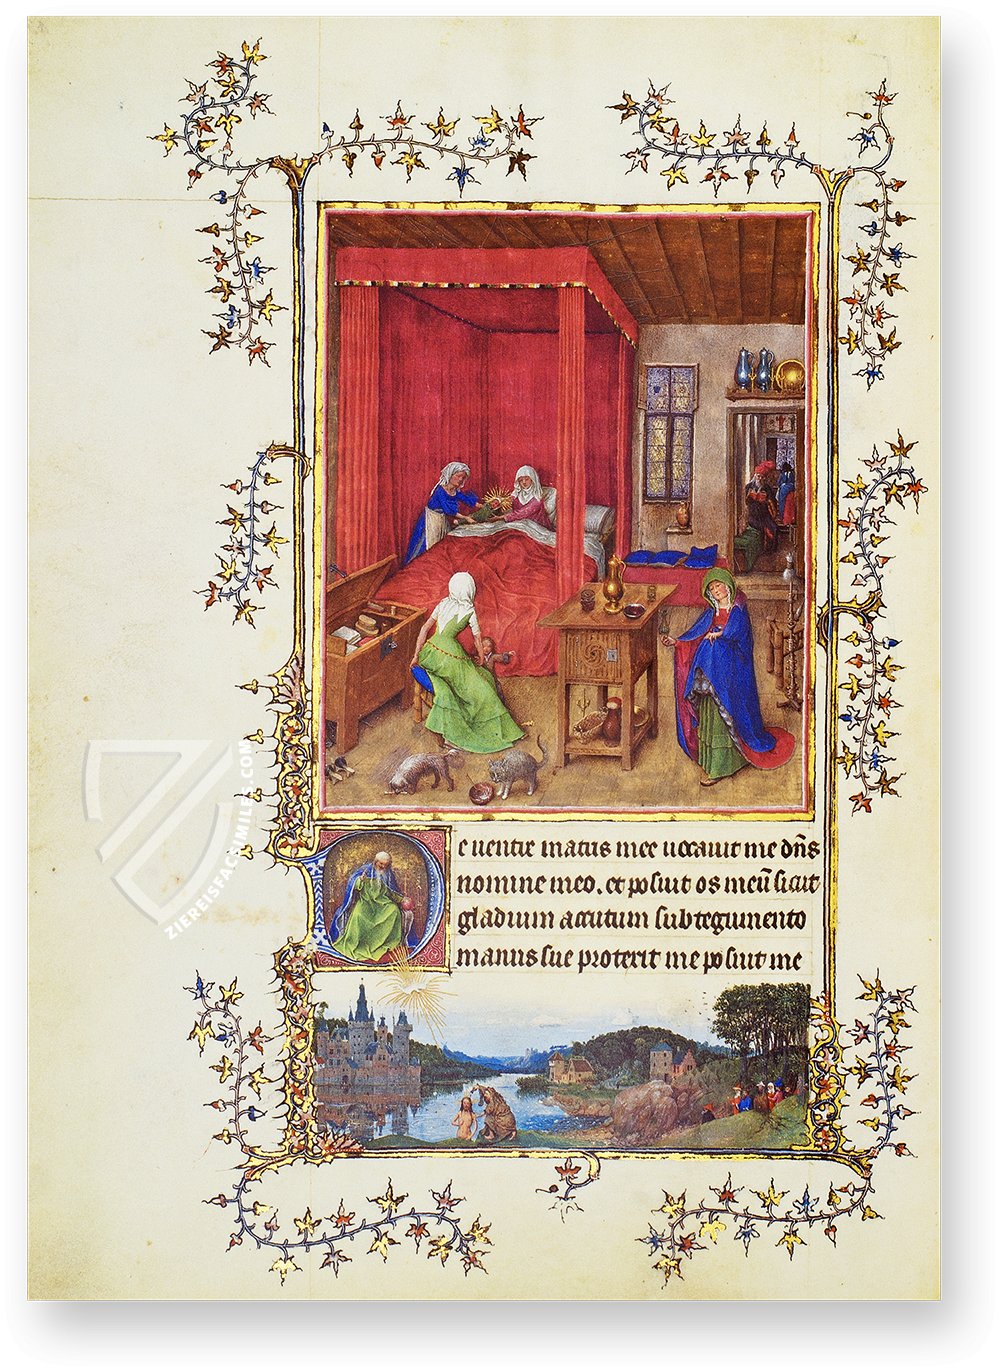 De uentre matris mee uocauit me dn̄s
nomine meo. et posuit os meū sicut
gladium accutum sub tegumento
manus sue proterit me posuit me
ZIEREISFACSIMILES.COM